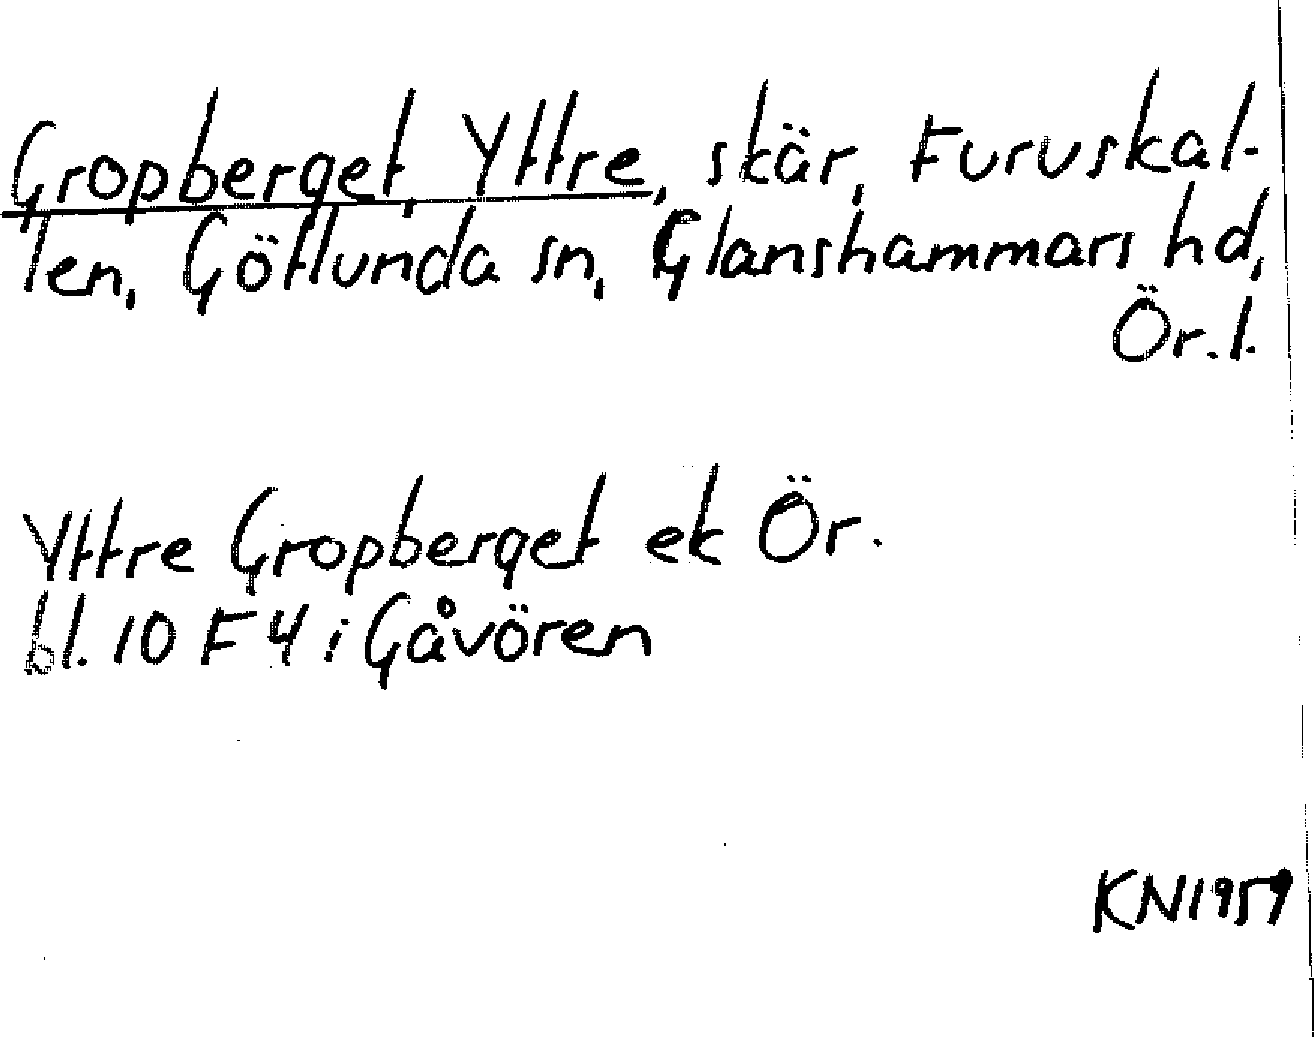 Gropberget, Yttre, skär, Furuskal-
len, Götlunda sn, Glanshammars hd,
Ör. l.
Yttre Gropberget ek Ör.
bl. 10 F 4 i Gåvören
KN 1959